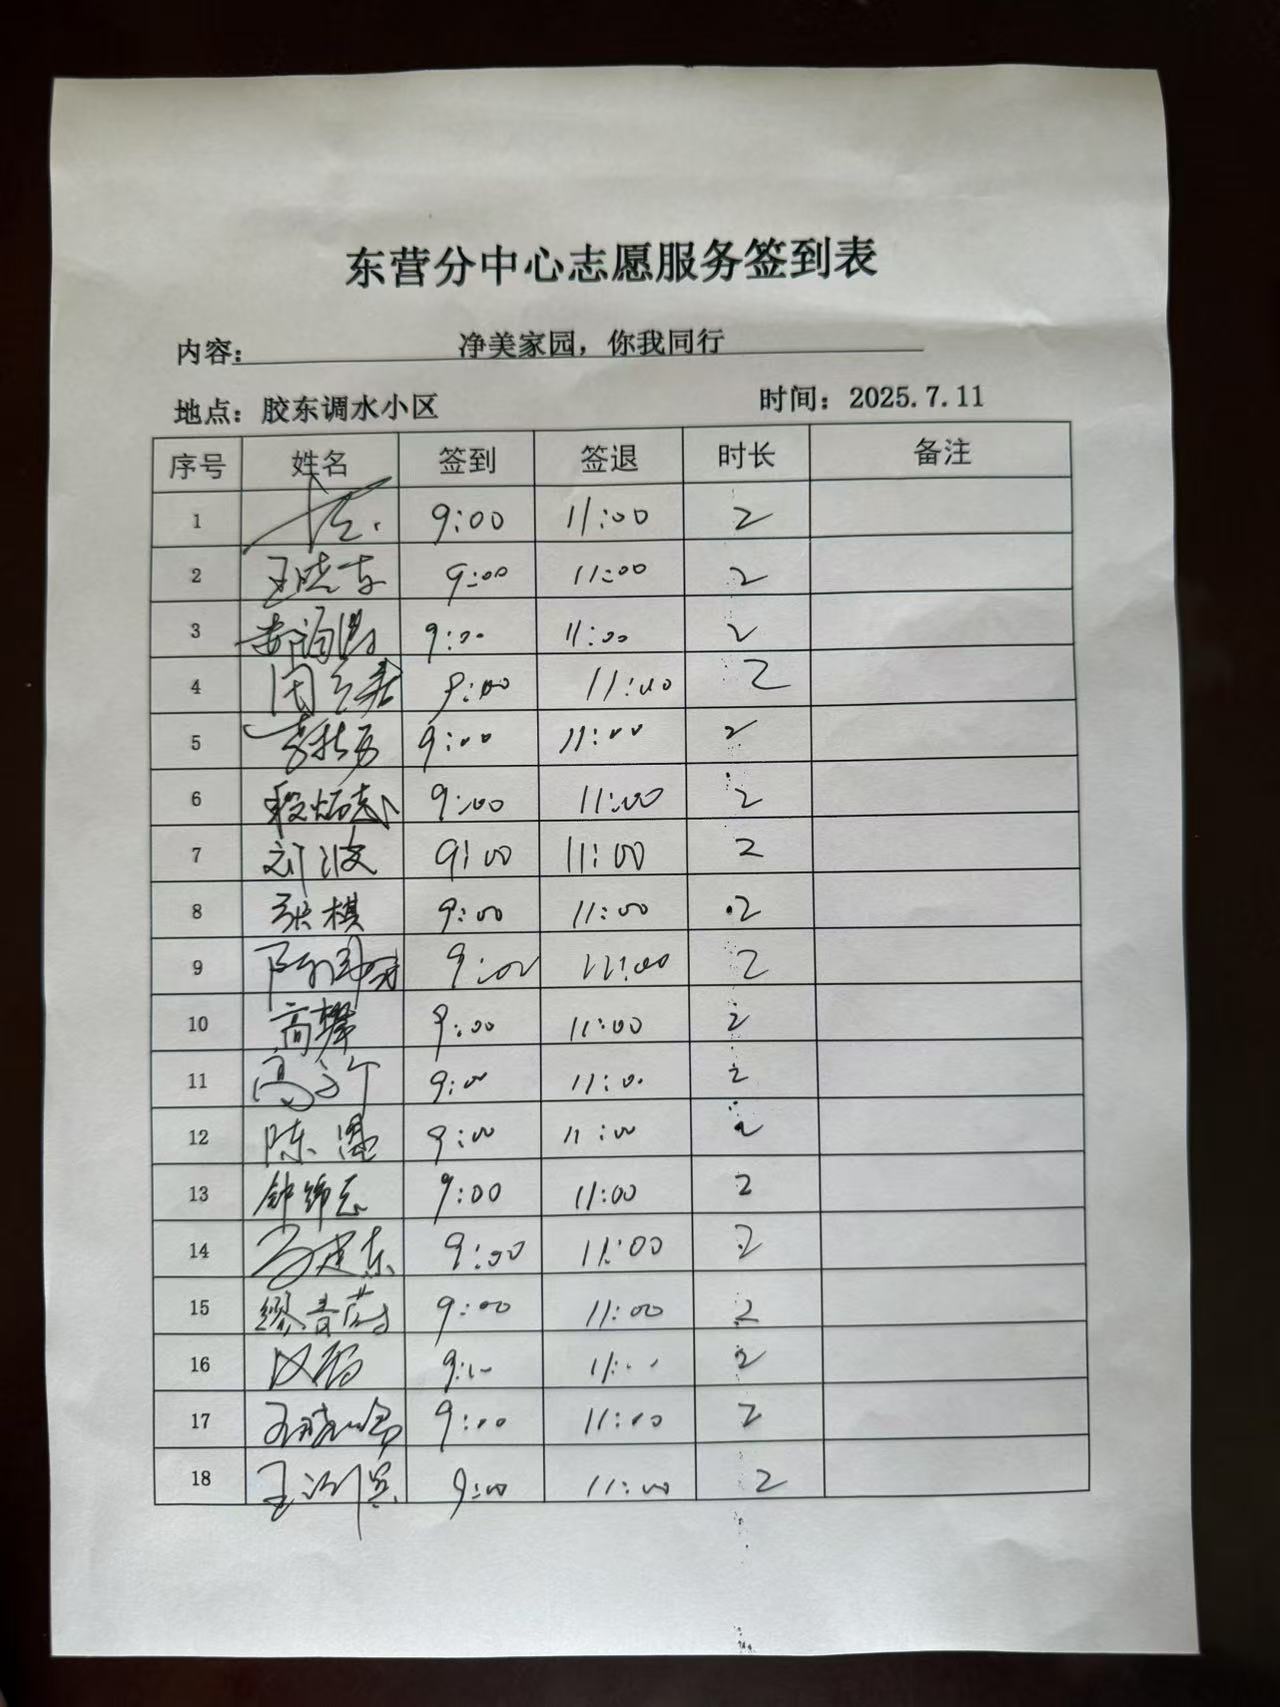 东营分中心志愿服务签到表
内容： 净美家园，你我同行
地点：胶东调水小区 时间：2025.7.11
序号 姓名 签到 签退 时长 备注
1 9:00 11:00 2
2 王晓东 9:00 11:00 2
3 9:00 11:00 2
4 9:00 11:00 2
5 9:00 11:00 2
6 9:00 11:00 2
7 刘波 9:00 11:00 2
8 张棋 9:00 11:00 2
9 9:00 11:00 2
10 高攀 9:00 11:00 2
11 9:00 11:00 2
12 陈 9:00 11:00 2
13 钟锦志 9:00 11:00 2
14 9:00 11:00 2
15 缪青蔚 9:00 11:00 2
16 9:00 11:00 2
17 9:00 11:00 2
18 9:00 11:00 2